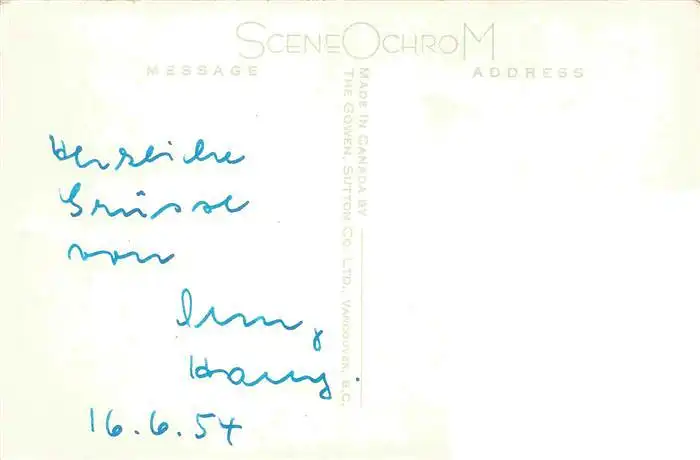 SCENEOCHROM
MESSAGE
ADDRESS
MADE IN CANADA BY
THE GOWEN, SUTTON CO. LTD., VANCOUVER, B.C.
Herzliche
Grüsse
von
16.6.54